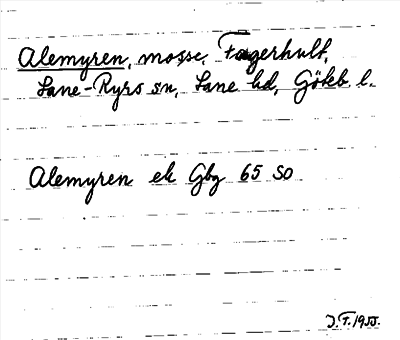 Alemyren, mosse, Fagerhult,
Lane-Ryrs sn, Lane hd, Göteb l.
Alemyren ek Gbg 65 SO
J.F. 1955.